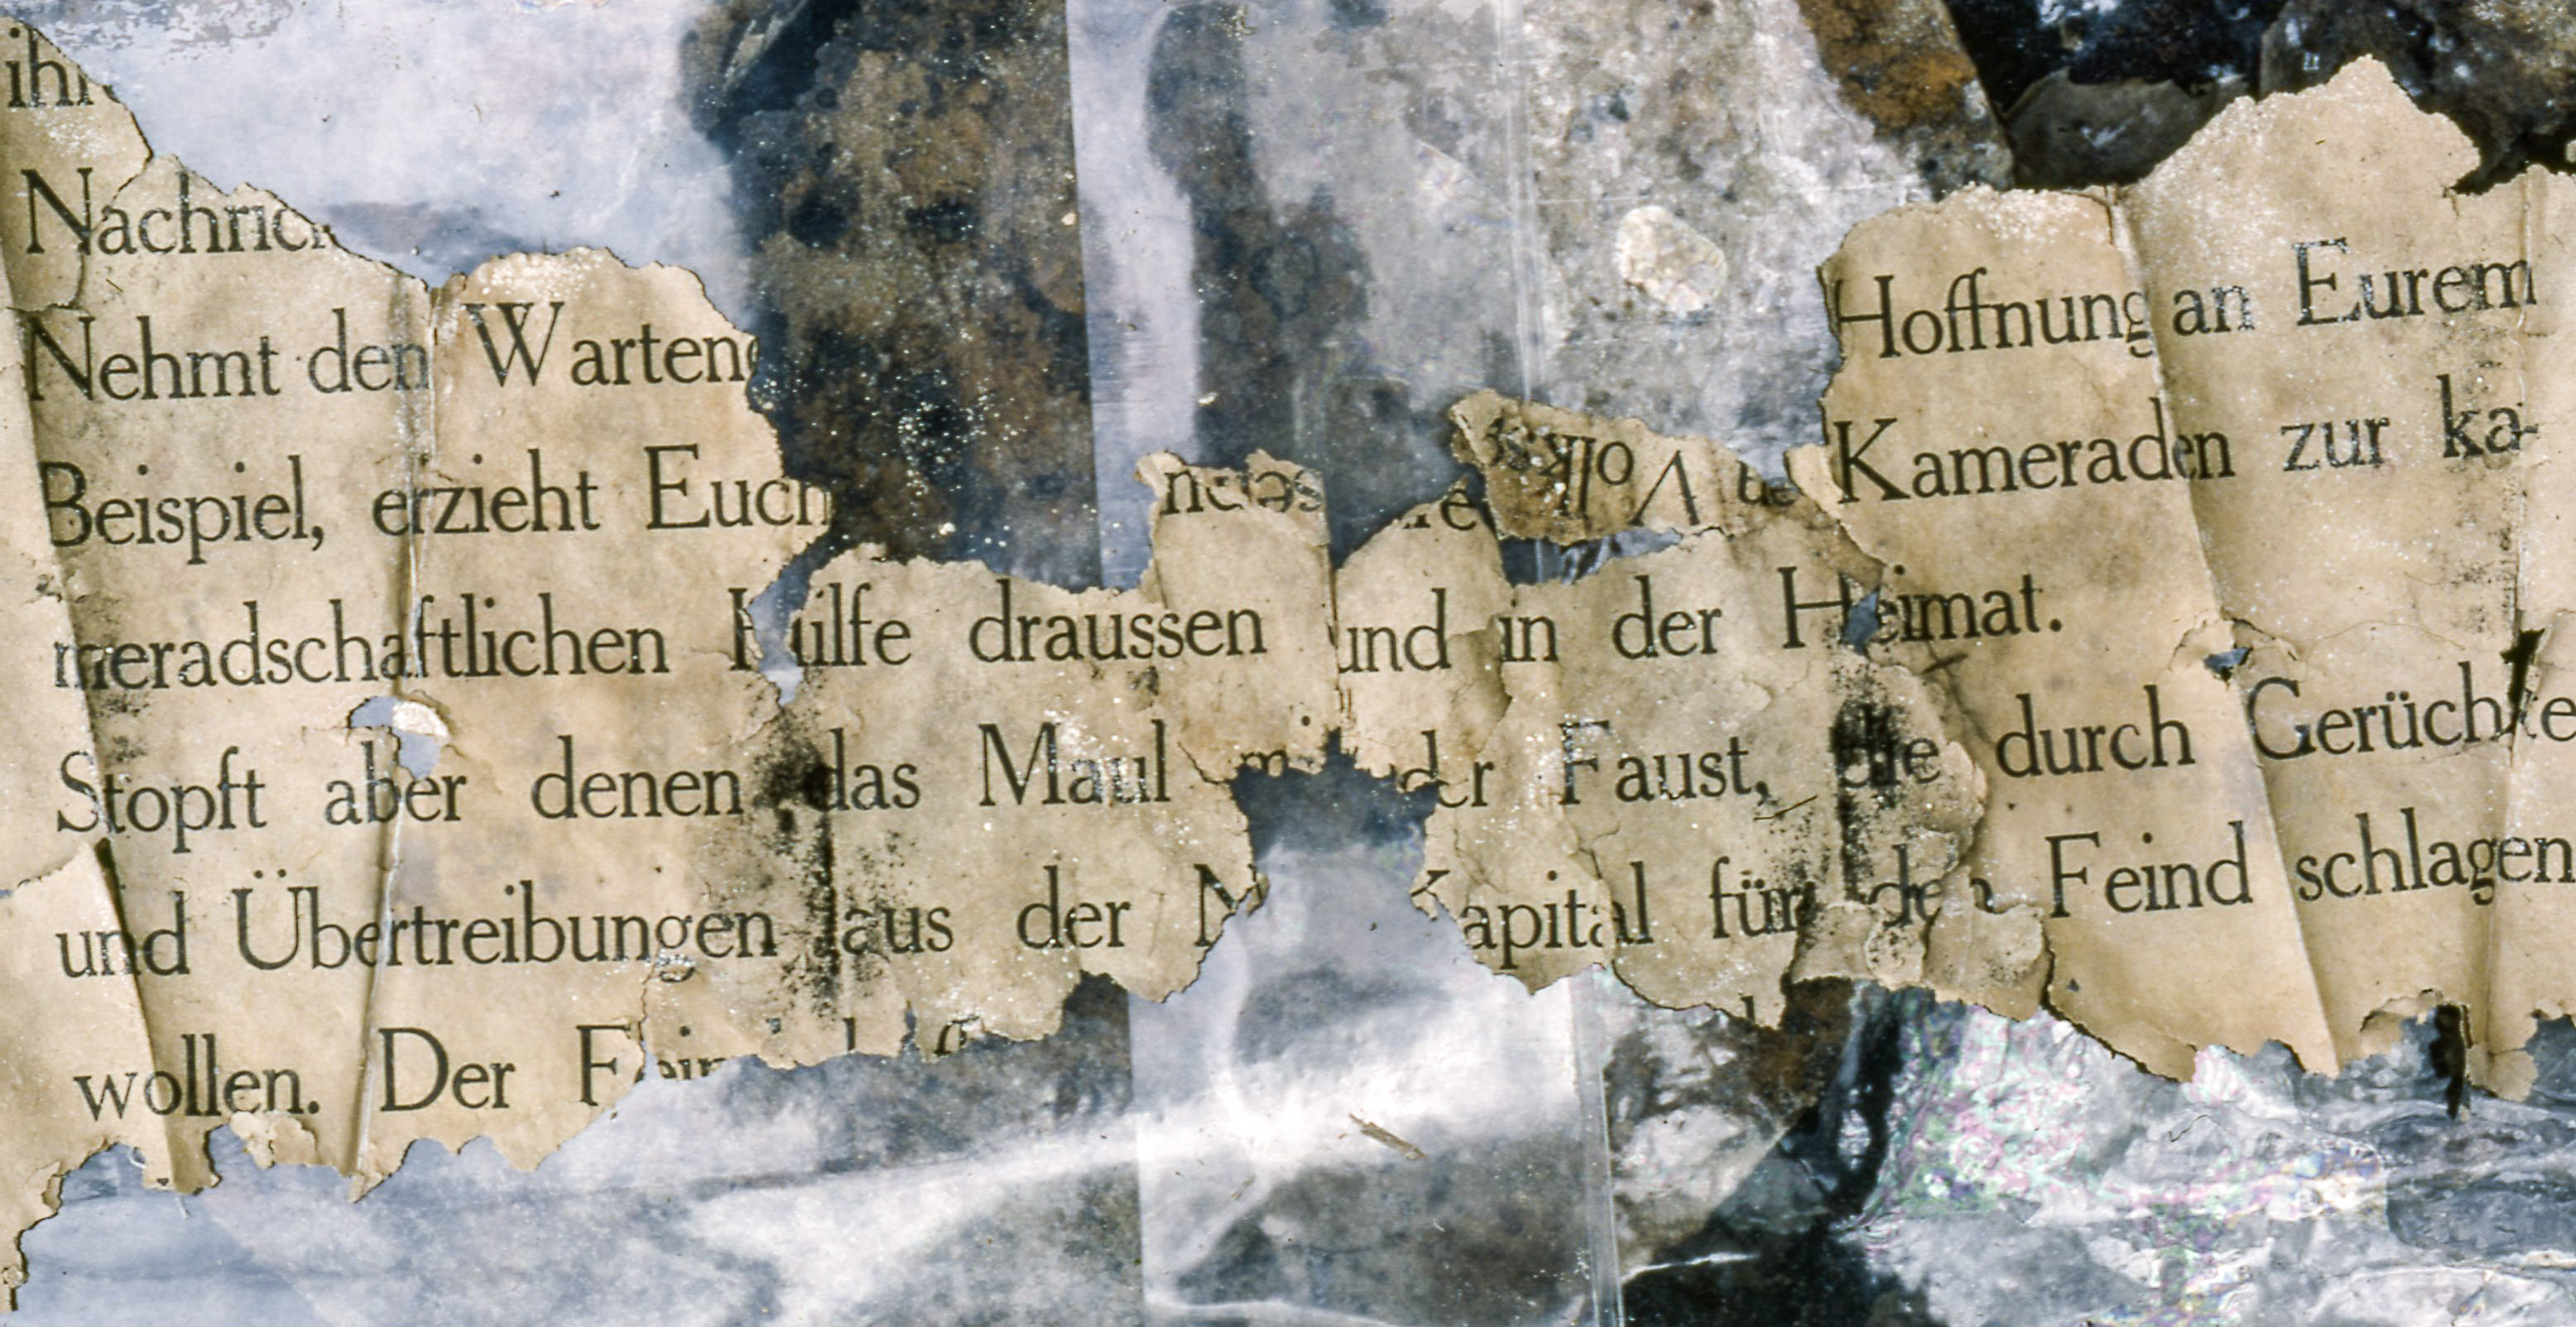 Nehmt den Hoffnung an Eurem
Beispiel, erzieht Euch Kameraden zur ka-
meradschaftlichen Hülfe draussen und in der Heimat.
Stopft aber denen das Maul der Faust, die durch Gerüchte
und Übertreibungen aus der Kapital für den Feind schlagen
wollen. Der
Volks